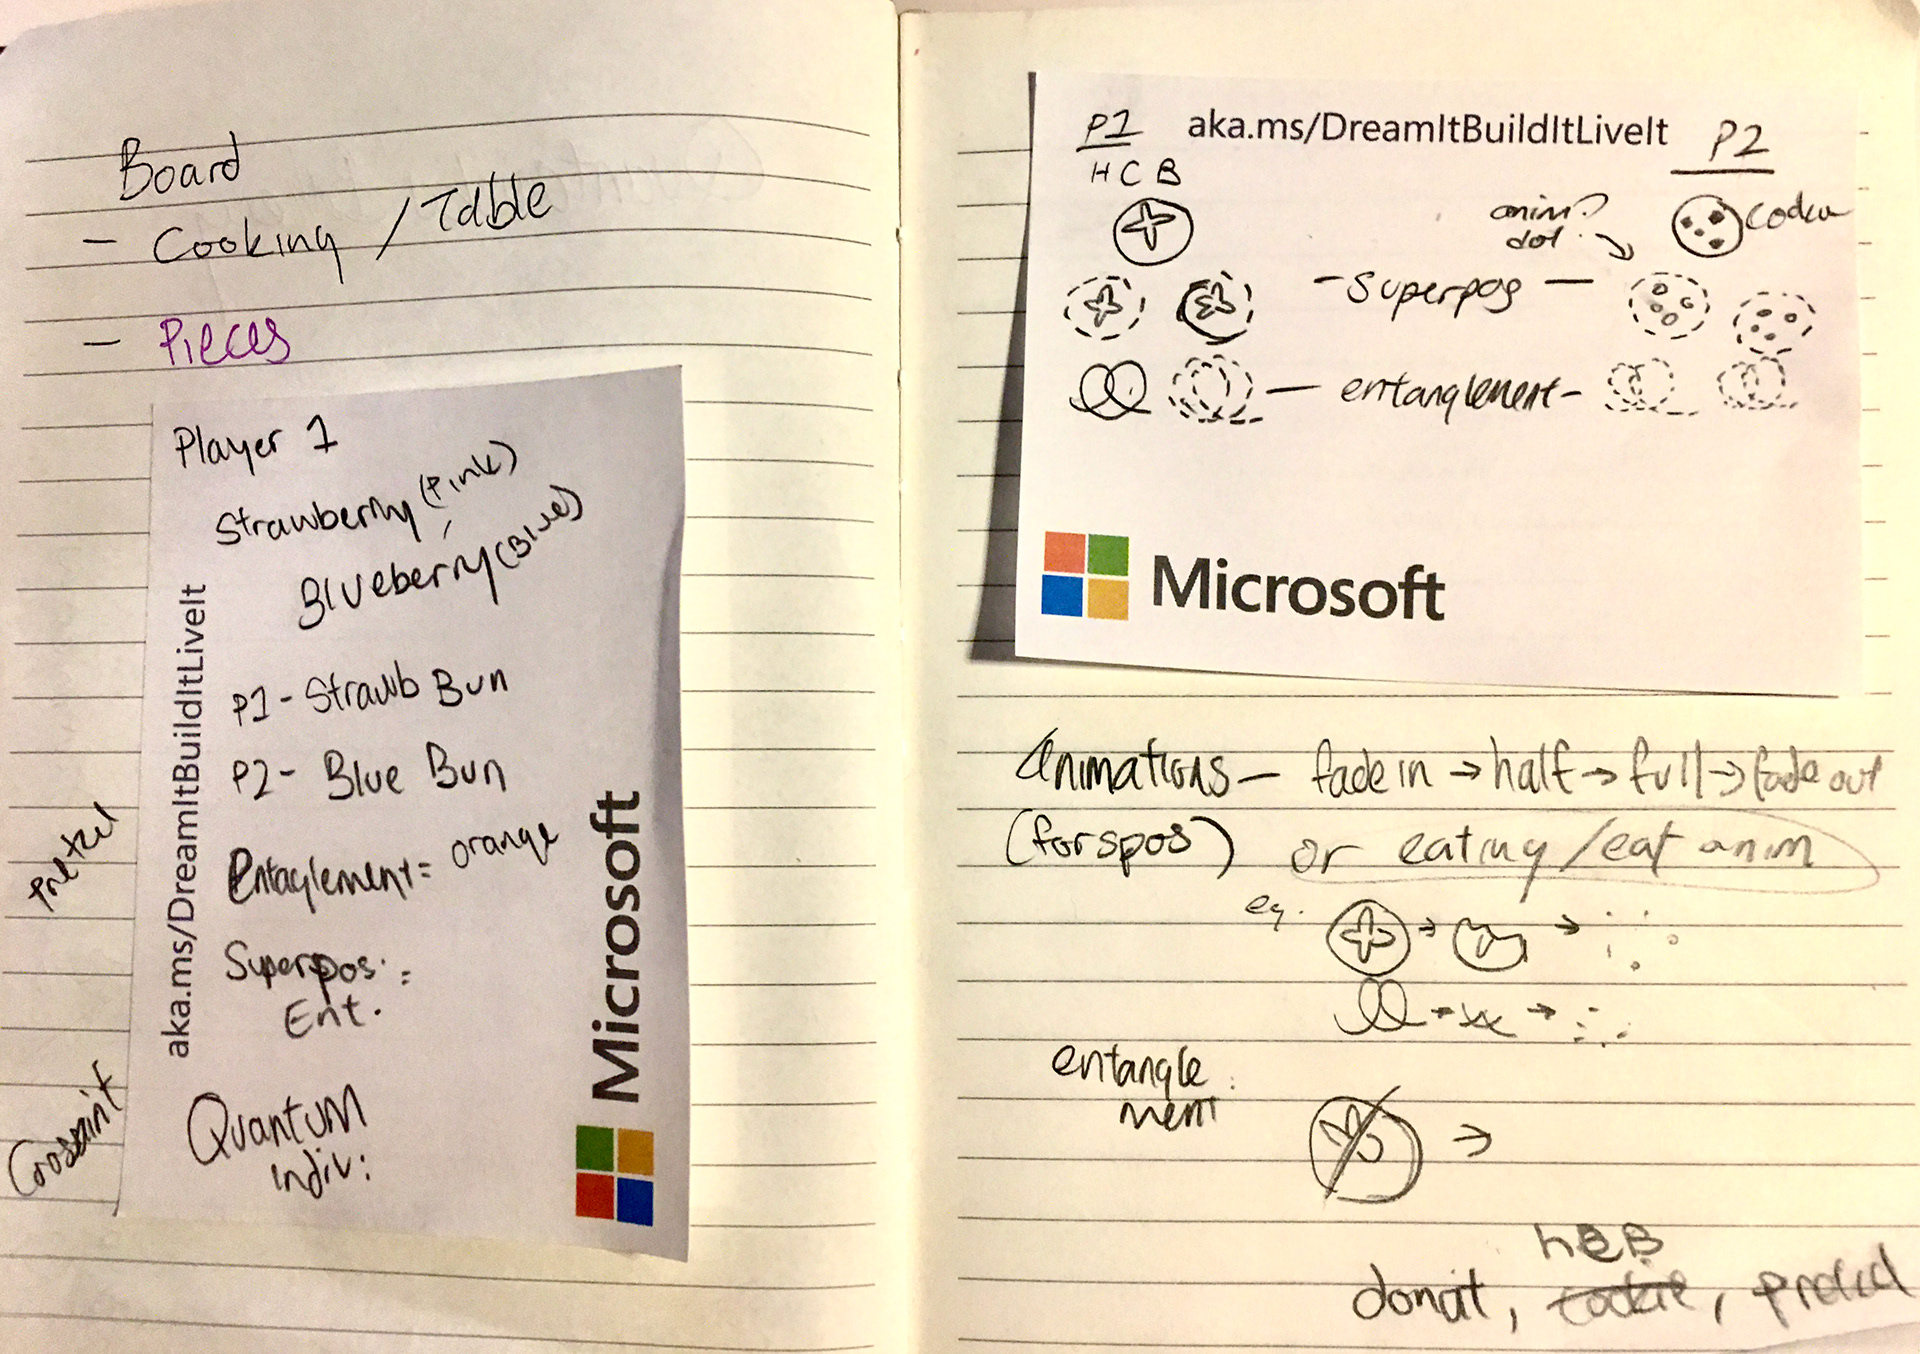 Board
- Cooking / Table
- Pieces
Player 1
Strawberry (Pink)
Blueberry (Blue)
P1 - Strawb Bun
P2 - Blue Bun
Entaglement = orange
Superpos. =
Ent.
Quantum
Indiv:
aka.ms/DreamItBuildItLiveIt
Microsoft
Pretzel
P1
aka.ms/DreamItBuildItLiveIt
P2
H C B
anim?
dot
- Superpos -
- entanglement -
Microsoft
Animations - fade in → half → full → fade out
(for spos) or eating / eat anim
eg.
entangle
ment
HCB
donut, cookie, pretzel